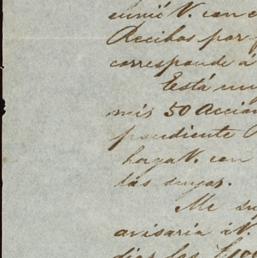 envió V. con e
Recibos por
corresponde á
Está mu
mis 50 Accion
pendiente
haga V. con
las suyas.
Me
avisaria á V.
dias los